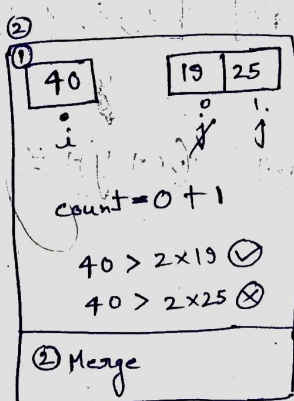 ②
①
40 19 25
0 1.
i j j
count = 0 + 1
40 > 2 × 19 ✓
40 > 2 × 25 ✗
② Merge